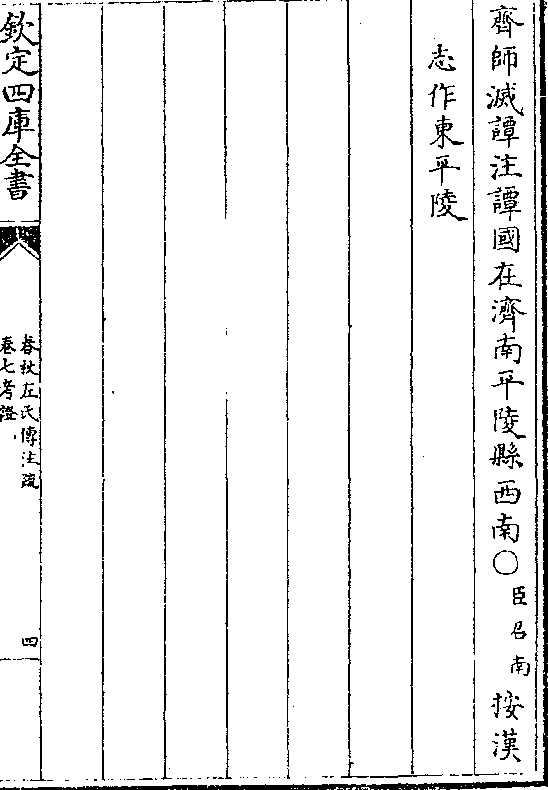 齊師滅譚注譚國在濟南平陵縣西南〇臣召南按漢
志作東平陵
欽定四庫全書
春秋左氏傳注疏
卷七考證
四